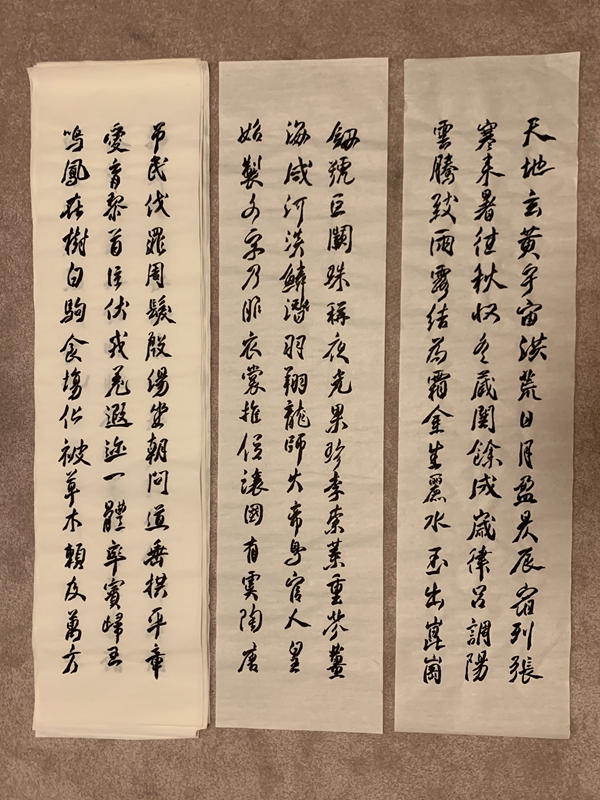 天地玄黃宇宙洪荒日月盈昃辰宿列張
寒來暑往秋收冬藏閏餘成歲律呂調陽
雲騰致雨露結為霜金生麗水玉出崑崗
劒號巨闕珠稱夜光果珍李柰菜重芥薑
海咸河淡鱗潛羽翔龍師火帝鳥官人皇
始製文字乃服衣裳推位讓國有虞陶唐
吊民伐罪周發殷湯坐朝問道垂拱平章
愛育黎首臣伏戎羌遐迩一體率賓歸王
鳴鳳在樹白駒食場化被草木賴及萬方